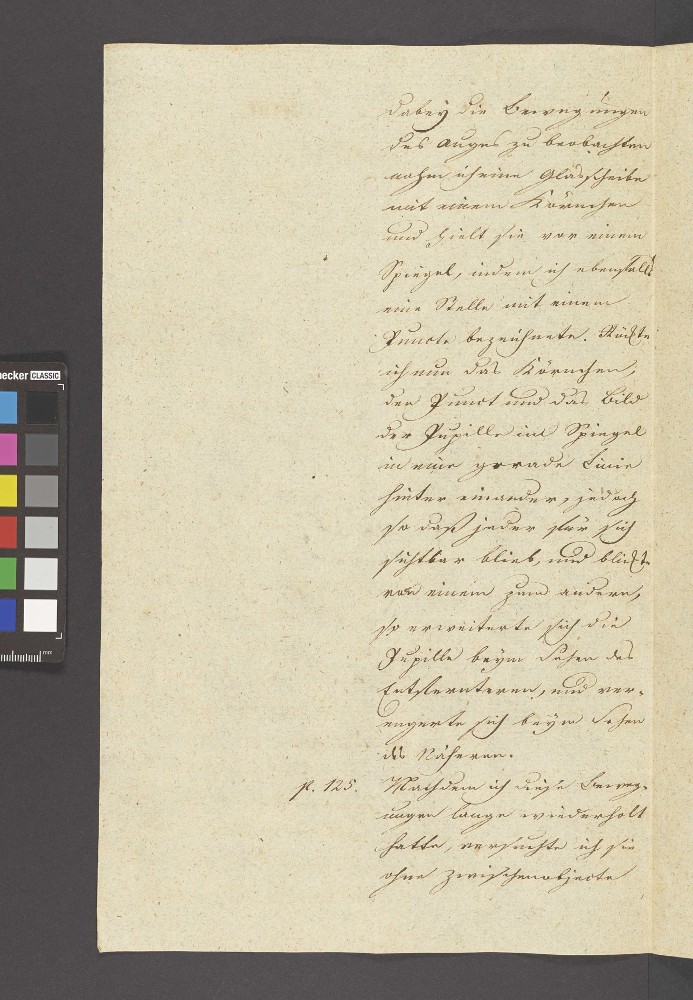 ecker CLASSIC
mm
dabey die Bewegungen
des Auges zu beobachten
nahm ich eine Glasscheibe
mit einem Körnchen
und hielt sie vor einem
Spiegel, indem ich ebenfalls
eine Stelle mit einem
Puncte bezeichnete. Rückte
ich nun das Körnchen,
den Punct und das Bild
der Pupille im Spiegel
in eine gerade Linie
hinter einander, jedoch
so daß jeder für sich
sichtbar blieb, und blickte
von einem zum andern,
so erweiterte sich die
Pupille beym Sehen des
Entfernteren, und ver-
engerte sich beym Sehen
des Näheren.
p. 125. Nachdem ich diese Beweg-
ungen lange wiederholt
hatte, versuchte ich sie
ohne Zwischenobjecte